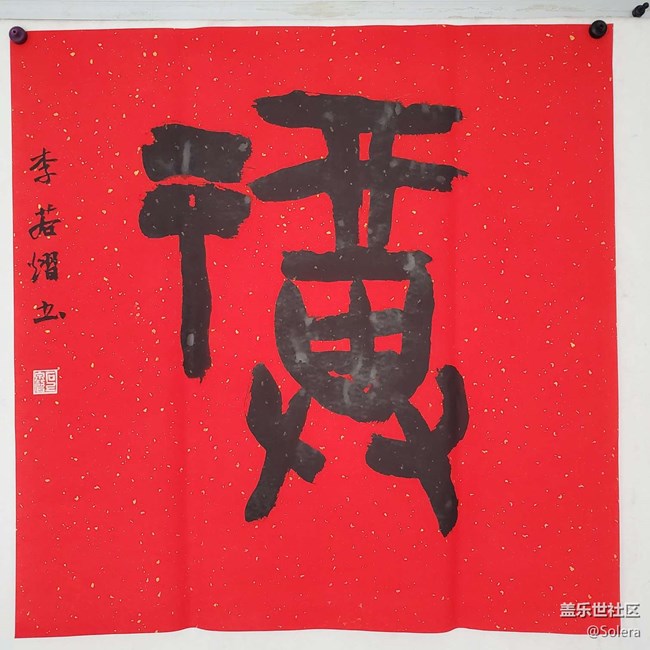 福
李若熠书
盖乐世社区
@Solera